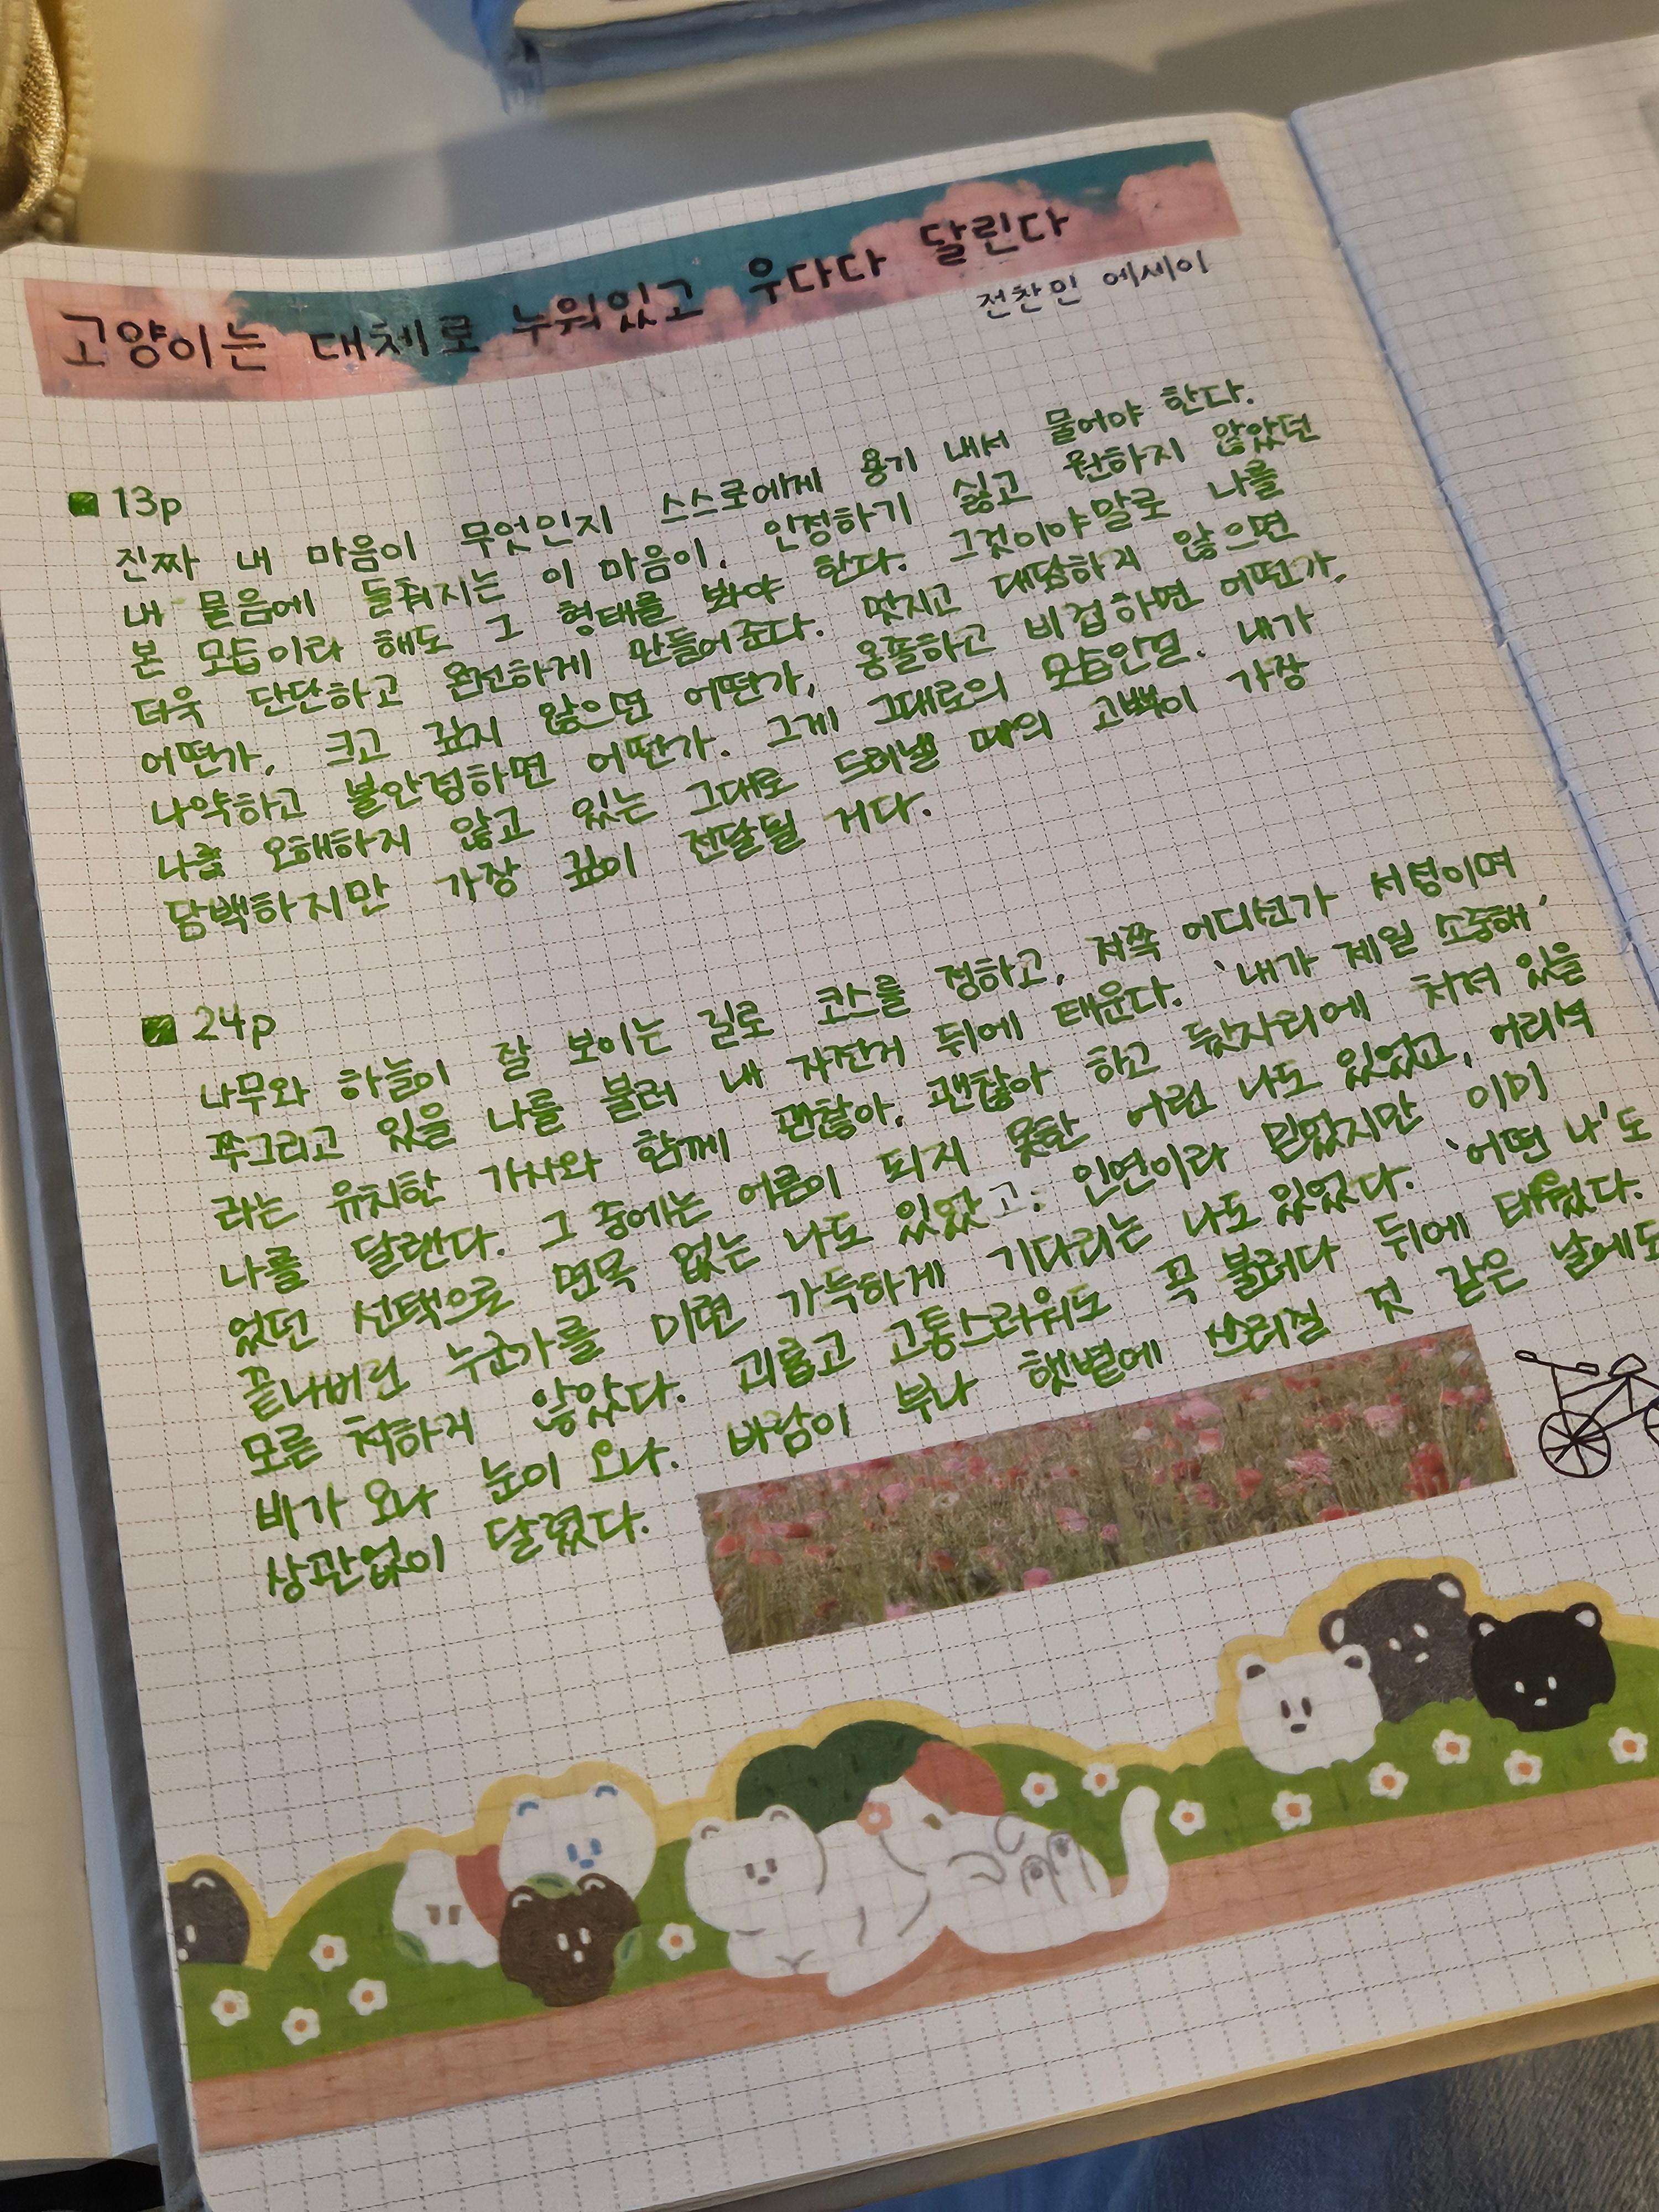 고양이는 대체로 누워있고 우다다 달린다
전찬민 에세이
13p
진짜 내 마음이 무엇인지 스스로에게 용기 내서 물어야 한다.
내 물음에 들춰지는 이 마음이, 인정하기 싫고 원하지 않았던
본 모습이라 해도 그 형태를 봐야 한다. 그것이야말로 나를
더욱 단단하고 완전하게 만들어준다. 멋지고 대담하지 않으면
어떤가, 크고 깊지 않으면 어떤가, 옹졸하고 비겁하면 어떤가,
나약하고 불안정하면 어떤가. 그게 그대로의 모습인걸. 내가
나를 오해하지 않고 있는 그대로 드러낼 때의 고백이 가장
담백하지만 가장 깊이 전달될 거다.
24p
나무와 하늘이 잘 보이는 길로 코스를 정하고, 저쪽 어디선가 서성이며
쭈그리고 있을 나를 불러 내 자전거 뒤에 태운다. '내가 제일 소중해'
라는 유치한 가사와 함께 괜찮아, 괜찮아 하고 뒷자리에 처져 있을
나를 달랜다. 그 중에는 어른이 되지 못한 어린 나도 있었고, 어리석
었던 선택으로 면목 없는 나도 있었고, 인연이라 믿었지만 이미
끝나버린 누군가를 미련 가득하게 기다리는 나도 있었다. '어떤 나'도
모른 척하지 않았다. 괴롭고 고통스러워도 꼭 불러다 뒤에 태웠다.
비가 오나 눈이 오나. 바람이 부나 햇볕에 쓰러질 것 같은 날에도
상관없이 달렸다.